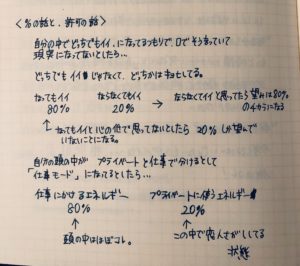 <%の話と、許可の話>
自分の中でどっちでもイイ、になってるつもりで、口でそう言っていて
現実になってないとしたら…
どっちでもイイ じゃなくて、どっちかは
なってもイイ
80%
ならなくてイイ
20%
→ ならなくてイイと思ってたら望みは80%
のチカラになる
↑なってもイイと心の底で思ってないとしたら 20%しか望んで
いないことになる。
自分の頭の中が プライベートと仕事で分けるとして
「仕事モード」になってるとしたら…
仕事にかけるエネルギー
80%
↑
頭の中はほぼコレ。
プライベートに使うエネルギー
20%
↑
この中で恋人さがししてる
状態